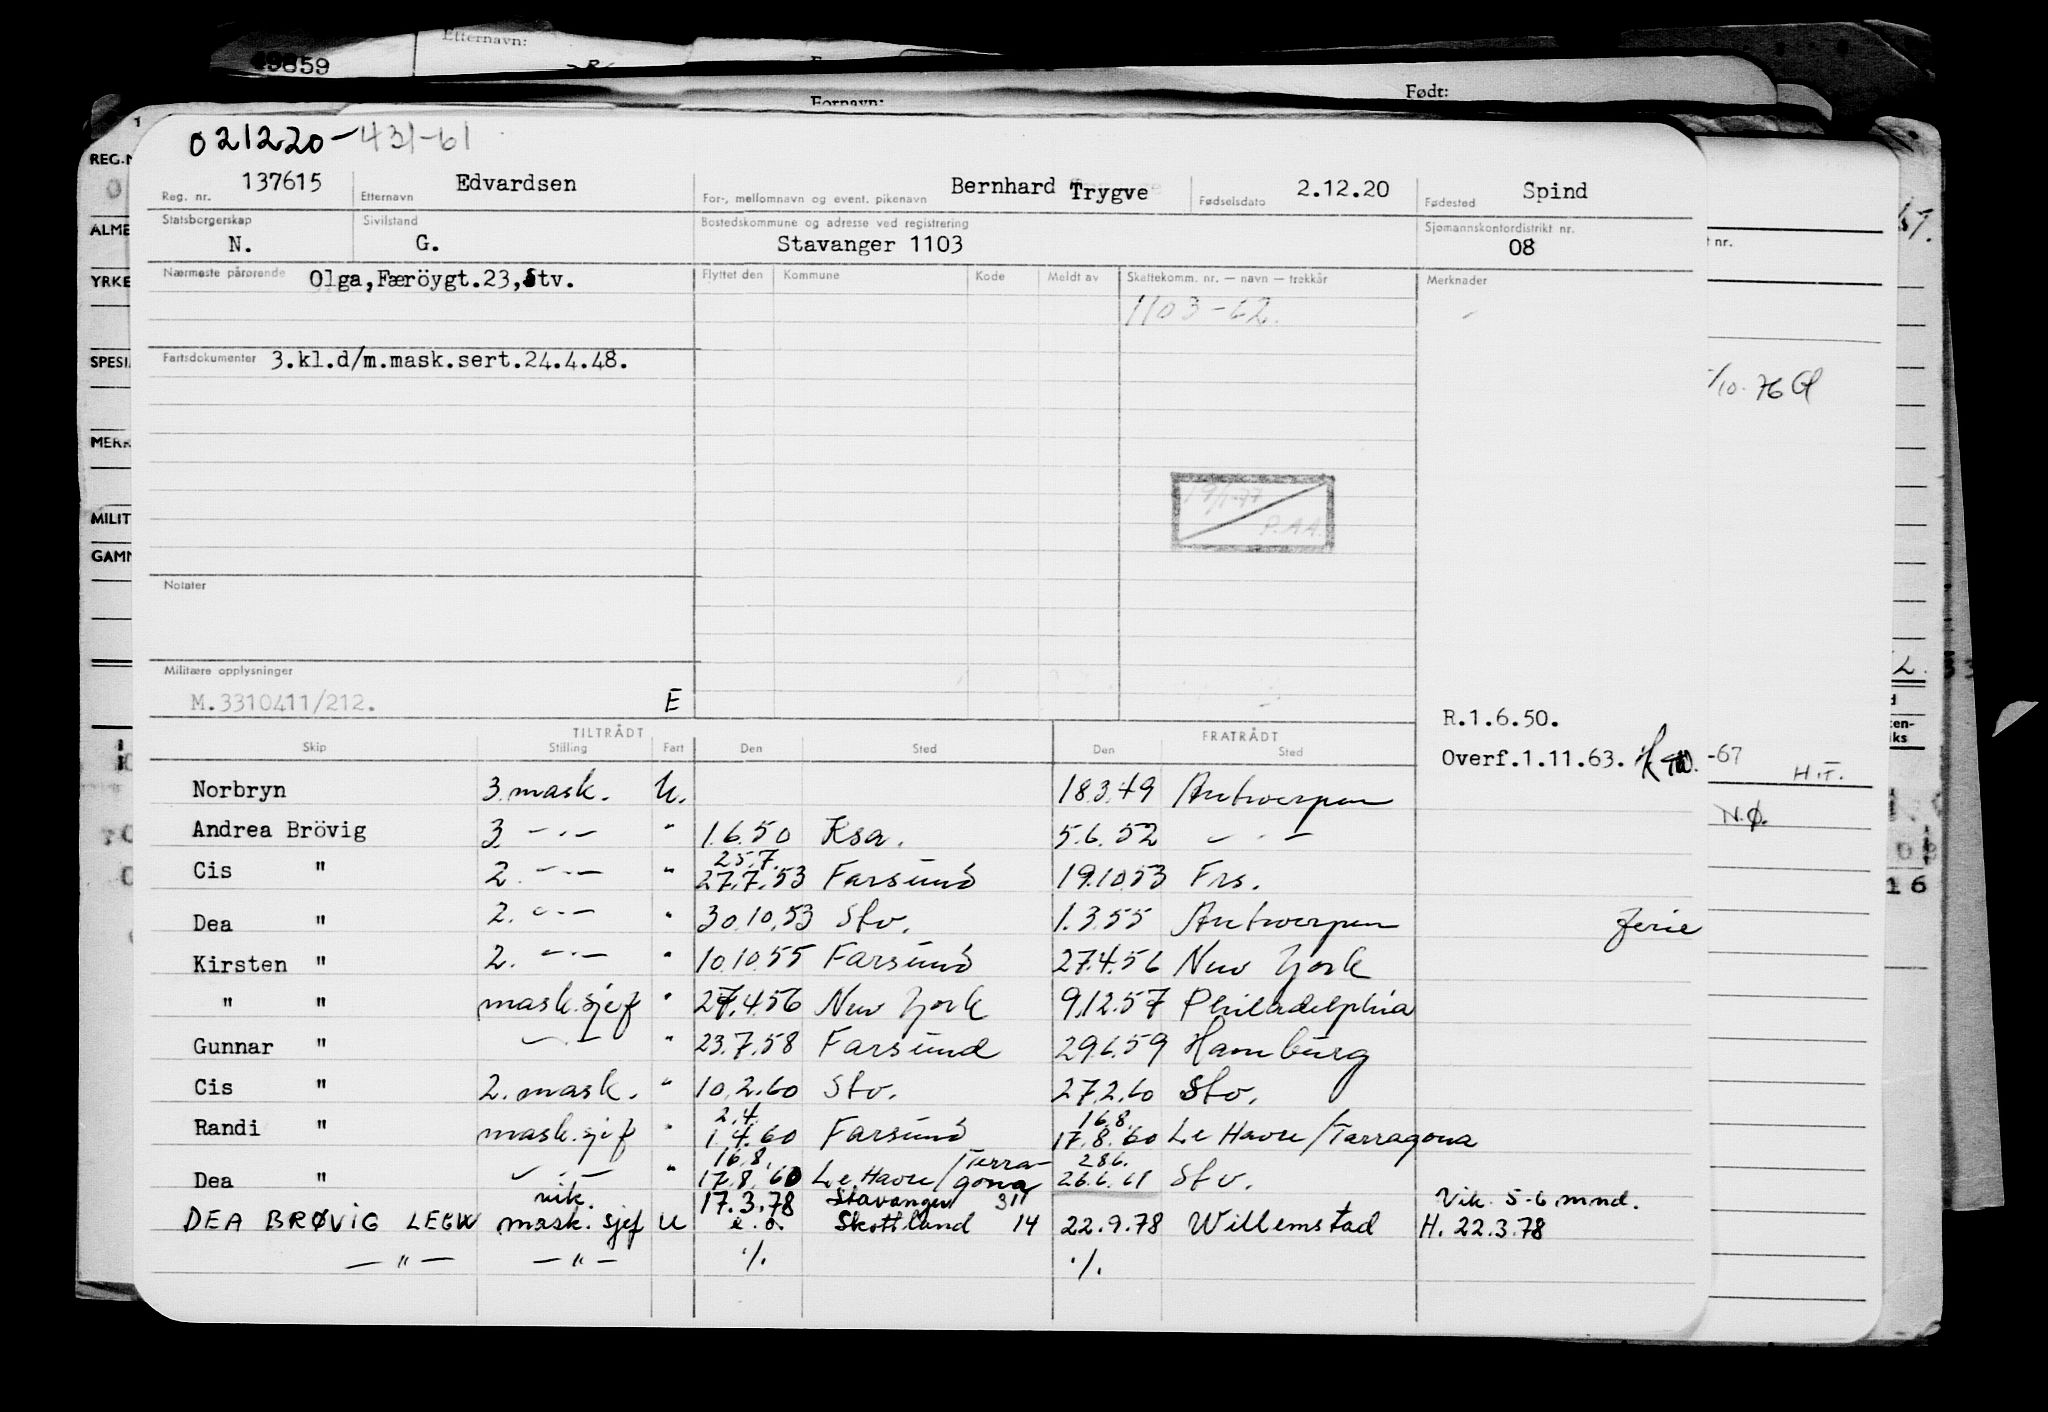 Etternavn:
Født:
Fornavn:
021220-431-61
REG.N
137615 Edvardsen Bernhard Trygve 2.12.20 Spind
Reg. nr. Etternavn For-, mellomnavn og event. pikenavn Fødselsdato Fødested
Statsborgerskap Sivilstand Bostedskommune og adresse ved registrering Sjømannskontordistrikt nr.
ALME
N. G. Stavanger 1103 08
nr.
Nærmeste pårørende Olga,Færöygt.23,Stv. Flyttet den Kommune Kode Meldt av Skattekomm. nr. — navn — trekkår Merknader
YRKE
1103-62.
SPESI
Fartsdokumenter 3.kl.d/m.mask.sert.24.4.48.
/10.76
MERK
P.AA.
MILIT
GAMM
Notater
Militære opplysninger
M.3310411/212. E
R.1.6.50.
TILTRÅDT FRATRÅDT
Skip Stilling Fart Den Sted Den Sted
Overf.1.11.63. -67
H.T.
Norbryn 3.mask. U. 18.3.49 Antwerpen
N.Ø.
Andrea Brövig 3. -"- " 1.6.50 Ksa. 5.6.52 -"-
25.7.
Cis " 2. -"- " 27.7.53 Farsund 19.10.53 Frs.
16
Dea " 2. -"- " 30.10.53 Stv. 1.3.55 Antwerpen Ferie
Kirsten " 2. -"- " 10.10.55 Farsund 27.4.56 New York
" " mask.sjef " 27.4.56 New York 9.12.57 Philadelphia
Gunnar " -"- " 23.7.58 Farsund 29.6.59 Hamburg
Cis " 2. mask. " 10.2.60 Stv. 27.2.60 Stv.
2.4. 16.8.
Randi " mask.sjef " 1.4.60 Farsund 17.8.60 Le Havre/Tarragona
16.8. Terra- 28.6.
Dea " -"- " 17.8.60 Le Havre/gona 26.6.61 Stv.
vik. 17.3.78 Stavanger 311 Vik. 5-6 mnd.
DEA BRØVIG LEGW mask. sjef U e.o. Skottland 14 22.9.78 Willemstad H. 22.3.78
-"- -"- ./. ./.